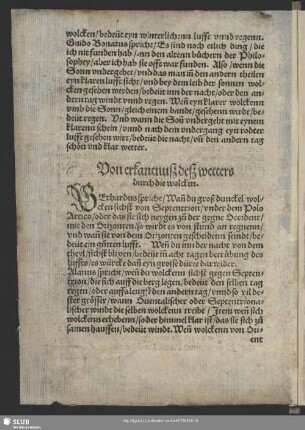 wolcken/ bedeüt eyn winterlichen lufft vnnd regenn.
Guido Bonatus spricht/ Es sind noch etlich ding/ die
ich nit funden hab/ inn den altenn büchern der Philo-
sophey/ aber ich hab sie offt war funden. Also/ wenn die
Sonn vndergehet/ vnd das man inn den andern theilen
eyn klaren lufft sicht/ vnd bey dem leib der sonnen wol-
cken gesehen werden/ bedeüt inn der nacht/ oder den an-
dern tag windt vnnd regen. Wen̄ eyn klarer wolckenn
vmb die Sonn/ gleich einem bendt/ gesehenn würt/ be-
deüt regen. Vnd wann die Son̄ vndergeht mit eynem
klarenn schein/ vnnd nach dem vndergang eyn rodter
lufft gesehen wirt/ bedeüt die nacht/ vn̄ den andern tag
schön vnd klar wetter.
Von erkantnuß deß wetters
durch die wolcken.
GErhardus spricht/ Wan̄ du groß dunckel wol-
cken sichst von Septentrion/ vnder dem Polo
Artico/ oder das sie sich neygen zů der gegne Occident/
mit den Orizonten/ so wird es von stund an regnenn/
vnd wan̄ sie von den Orizonten gescheidenn seindt/ be-
deüt ein gůten lufft. Wen̄ du inn der nacht von dem
theyl/ sichst blixen/ bedeüt in̄ acht tagen berürhung des
luffts/ es würcke dan̄ eyn grosse dürre darwider.
Alanus spricht/ wen̄ du wolckenn sichst gegen Septen-
trion/ die sich auff die berg legen/ bedeüt den selben tag
regen/ oder auffs lengst den andern tag/ vnnd so vil de-
ster grösser/ wann Orientalischer oder Septentriona-
lischer windt die selben wolckenn treibt/ Item wen̄ sich
wolckenn erhebenn/ so der himmel klar ist/ das sie sich zů
samen hauffen/ bedeüt windt. Wen̄ wolckenn von Ori-
ent
SLUB
Wir führen Wissen.